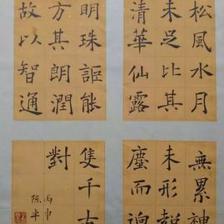 松風水月
未足比其
清華仙露
明珠詎能
方其朗潤
故以智通
無累神
未形超
塵而迥
隻千古
對
丙申